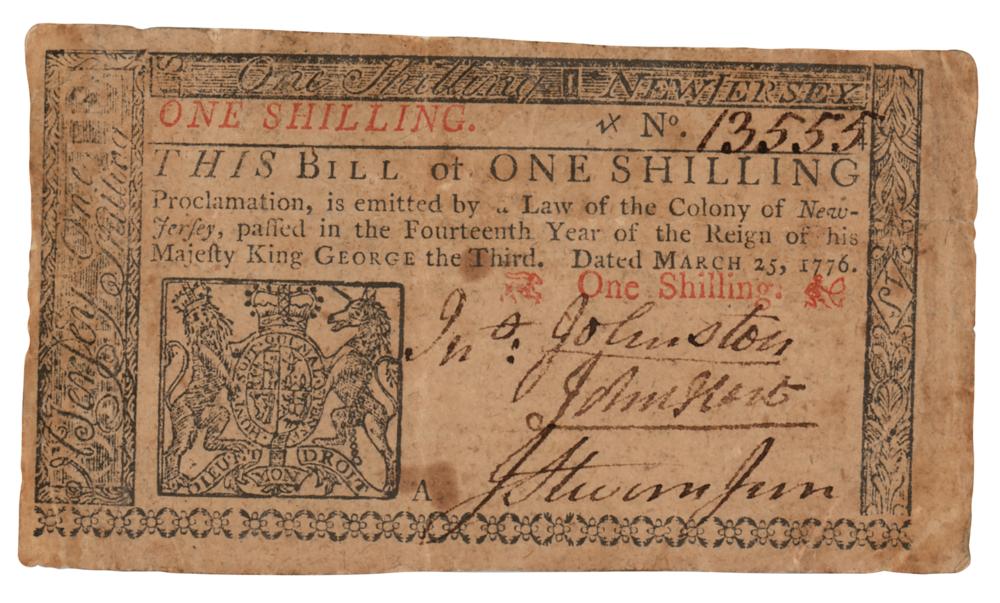 One Shilling 1 NEW JERSEY
ONE SHILLING. No. 13555
THIS BILL of ONE SHILLING
Proclamation, is emitted by a Law of the Colony of New-
Jersey, paſſed in the Fourteenth Year of the Reign of his
Majeſty King GEORGE the Third. Dated MARCH 25, 1776.
One Shilling.
Jno. Johnston
John Hart
J Stevens Jun
DIEU ET MON DROIT
A
N Jersey One Shilling